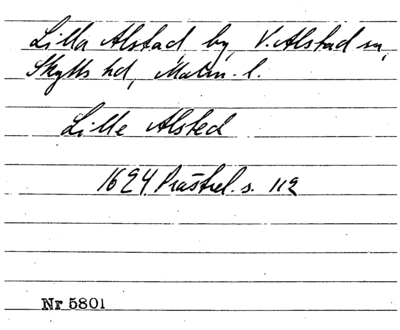 Lilla Alstad by, V. Alstad sn,
Skytts hd, Malm. l.
Lille Alsted
1624 Prästrel. s. 112
Nr 5801